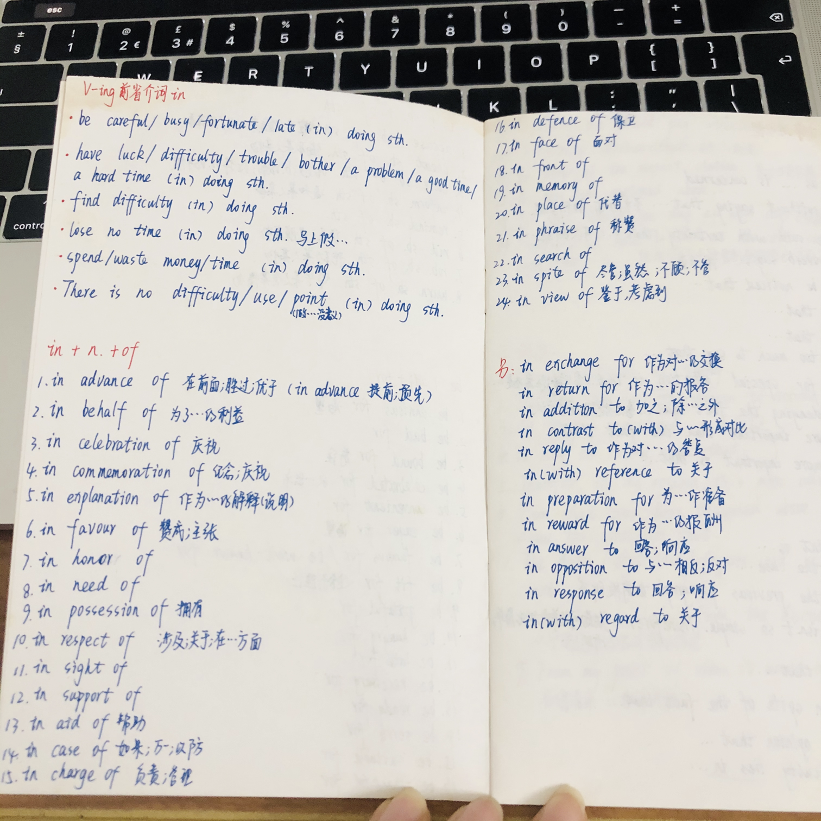 esc
± §
! 1
@ 2 €
£ 3 #
$ 4
% 5
^ 6
& 7
* 8
( 9
) 0
– -
+ =
W E R T Y U I O P { [ } ]
K L : ; " ' | \
control
V-ing 前省介词 in
· be careful / busy / fortunate / late (in) doing sth.
· have luck / difficulty / trouble / bother / a problem / a good time /
a hard time (in) doing sth.
· find difficulty (in) doing sth.
· lose no time (in) doing sth. 马上做…
· spend/waste money/time (in) doing sth.
· There is no difficulty/use/point (in) doing sth.
(做…没意义)
in + n. + of
1. in advance of 在前面;胜过;优于 (in advance 提前;预先)
2. in behalf of 为了…的利益
3. in celebration of 庆祝
4. in commemoration of 纪念;庆祝
5. in explanation of 作为…的解释(说明)
6. in favour of 赞成;主张
7. in honor of
8. in need of
9. in possession of 拥有
10. in respect of 涉及;关于;在…方面
11. in sight of
12. in support of
13. in aid of 帮助
14. in case of 如果;万一;以防
15. in charge of 负责;管理
16. in defence of 保卫
17. in face of 面对
18. in front of
19. in memory of
20. in place of 代替
21. in phraise of 称赞
22. in search of
23. in spite of 尽管;虽然;不顾;不管
24. in view of 鉴于;考虑到
另: in exchange for 作为对…的交换
in return for 作为…的报答
in addition to 加之;除…之外
in contrast to(with) 与…形成对比
in reply to 作为对…的答复
in(with) reference to 关于
in preparation for 为…作准备
in reward for 作为…的报酬
in answer to 回答;响应
in opposition to 与…相反;反对
in response to 回答;响应
in(with) regard to 关于